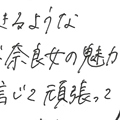 きるような
奈良女の魅力
信じて頑張って